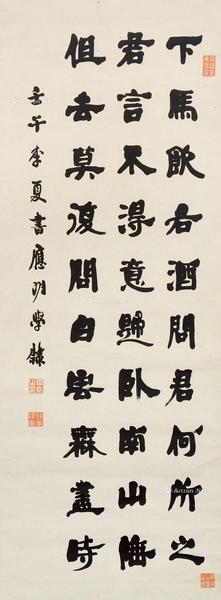 下馬飲右酒問君何所之
君言不得意歸臥南山陲
但去莫復問白雲無盡時
午季夏書應學